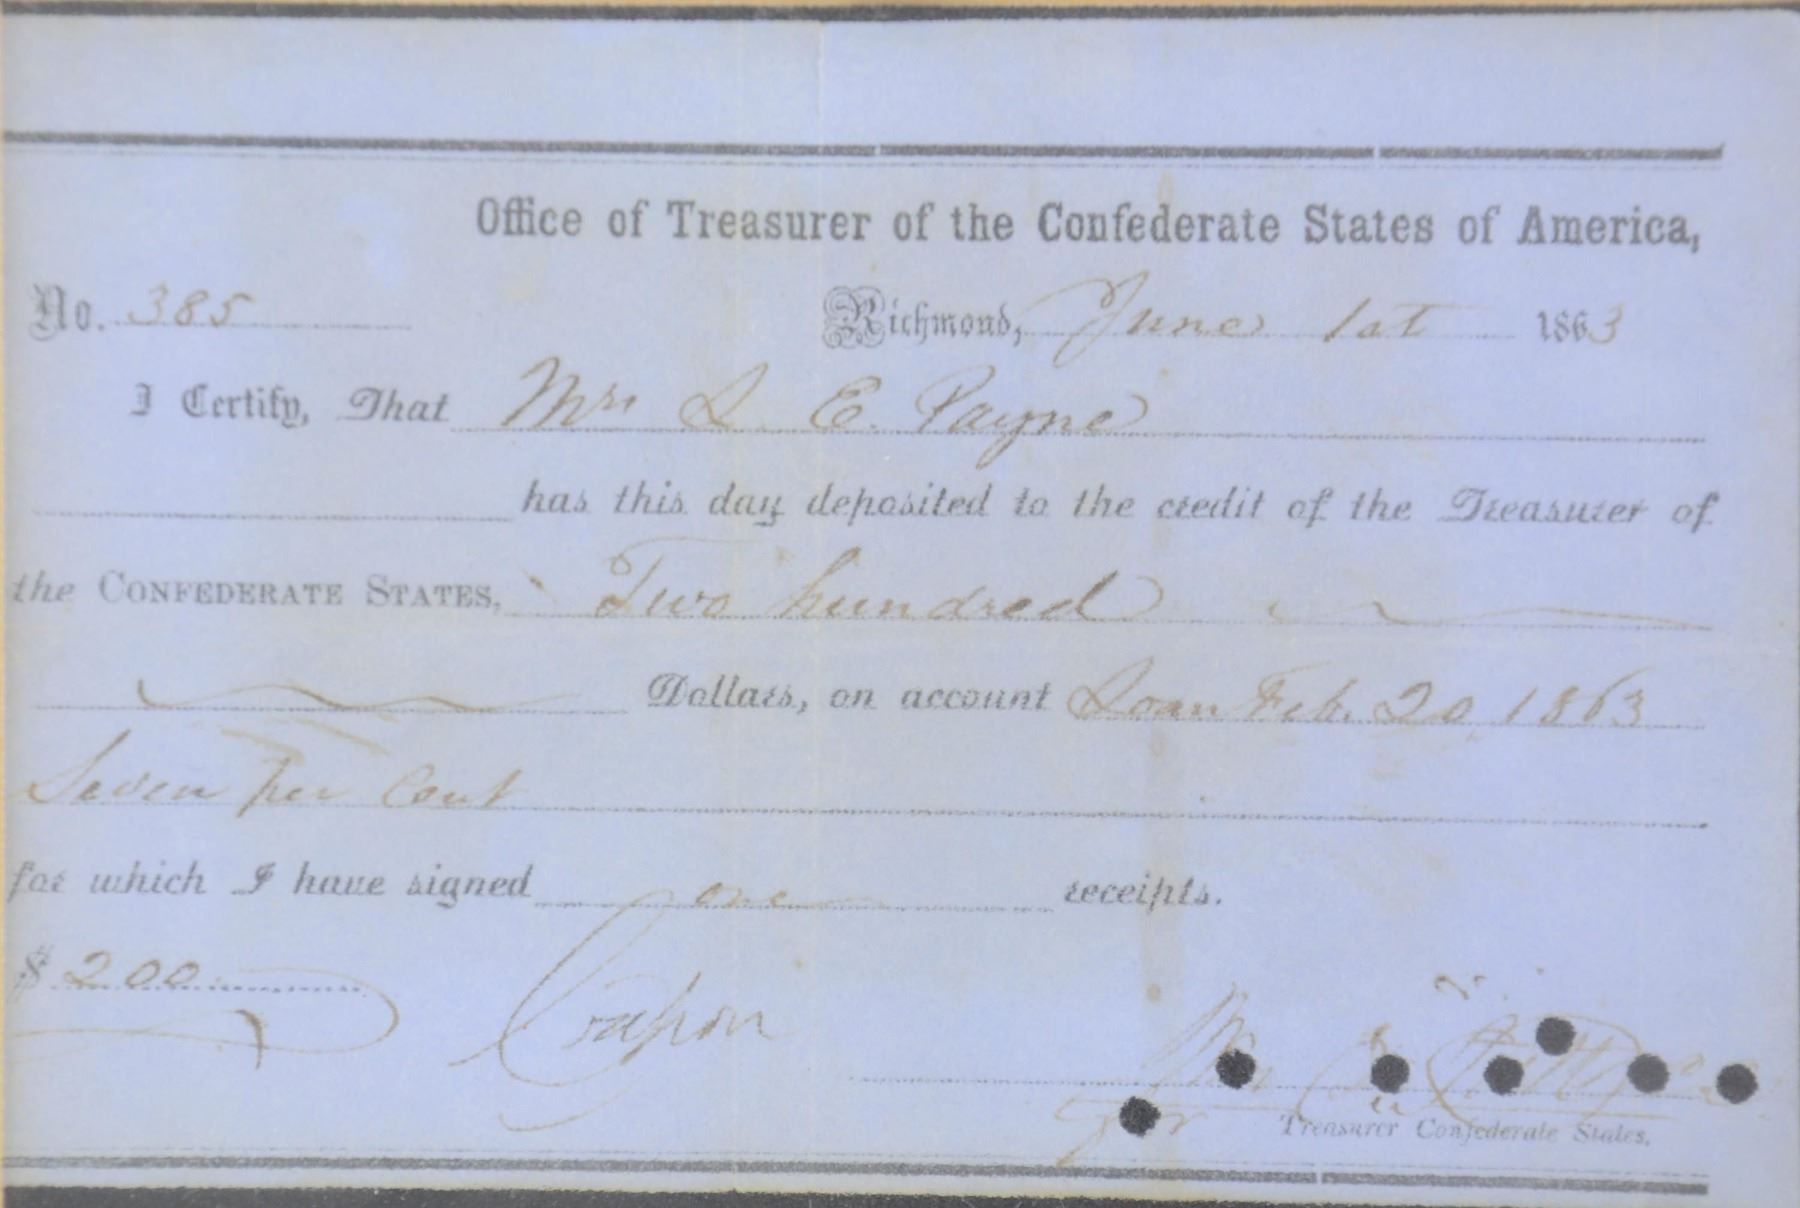 Office of Treasurer of the Confederate States of America,
No. 385 Richmond, June 1st 1863
I Certify, That Mrs L. E. Payne
has this day deposited to the credit of the Treasurer of
the CONFEDERATE STATES, Two hundred
Dollars, on account Loan Feb. 20, 1863
Seven per Cent
for which I have signed one receipts.
$ 200
Treasurer Confederate States.